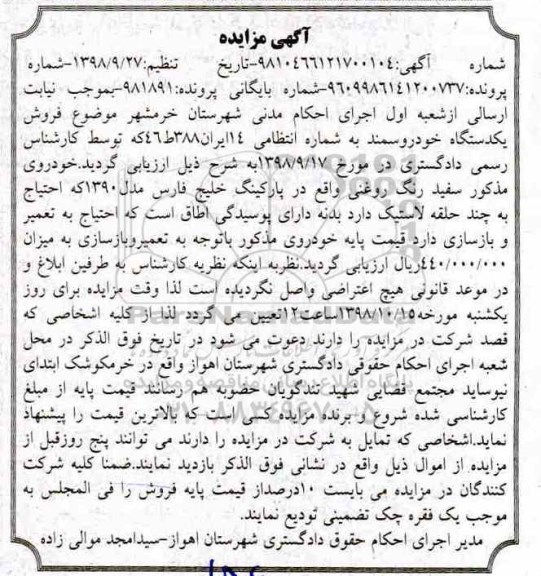 آگهی مزایده
شماره آگهی:۹۸۱۰۴۶۶۱۲۱۷۰۰۱۰۴-تاریخ تنظیم:۱۳۹۸/۹/۲۷-شماره
پرونده:۹۶۰۹۹۸۶۱۴۱۲۰۰۷۳۷-شماره بایگانی پرونده:۹۸۱۸۹۱-بموجب نیابت
ارسالی ازشعبه اول اجرای احکام مدنی شهرستان خرمشهر موضوع فروش
یکدستگاه خودروسمند به شماره انتظامی ۱۴ایران۳۸۸ط۴۶که توسط کارشناس
رسمی دادگستری در مورخ ۱۳۹۸/۹/۱۷به شرح ذیل ارزیابی گردید.خودروی
مذکور سفید رنگ روغنی واقع در پارکینگ خلیج فارس مدل۱۳۹۰که احتیاج
به چند حلقه لاستیک دارد بدنه دارای پوسیدگی اطاق است که احتیاج به تعمیر
و بازسازی دارد قیمت پایه خودروی مذکور باتوجه به تعمیروبازسازی به میزان
۴۴۰/۰۰۰/۰۰۰ریال ارزیابی گردید.نظربه اینکه نظریه کارشناس به طرفین ابلاغ و
در موعد قانونی هیچ اعتراضی واصل نگردیده است لذا وقت مزایده برای روز
یکشنبه مورخه۱۳۹۸/۱۰/۱۵ساعت۱۲تعیین می گردد لذا از کلیه اشخاصی که
قصد شرکت در مزایده را دارند دعوت می شود در تاریخ فوق الذکر در محل
شعبه اجرای احکام حقوقی دادگستری شهرستان اهواز واقع در خرمکوشک ابتدای
نیوساید مجتمع قضایی شهید تندگویان حضوبه هم رسانند قیمت پایه از مبلغ
کارشناسی شده شروع و برنده مزایده کسی است که بالاترین قیمت را پیشنهاد
نماید.اشخاصی که تمایل به شرکت در مزایده را دارند می توانند پنج روزقبل از
مزایده از اموال ذیل واقع در نشانی فوق الذکر بازدید نمایند.ضمنا کلیه شرکت
کنندگان در مزایده می بایست ۱۰درصداز قیمت پایه فروش را فی المجلس به
موجب یک فقره چک تضمینی تودیع نمایند.
مدیر اجرای احکام حقوق دادگستری شهرستان اهواز-سیدامجد موالی زاده